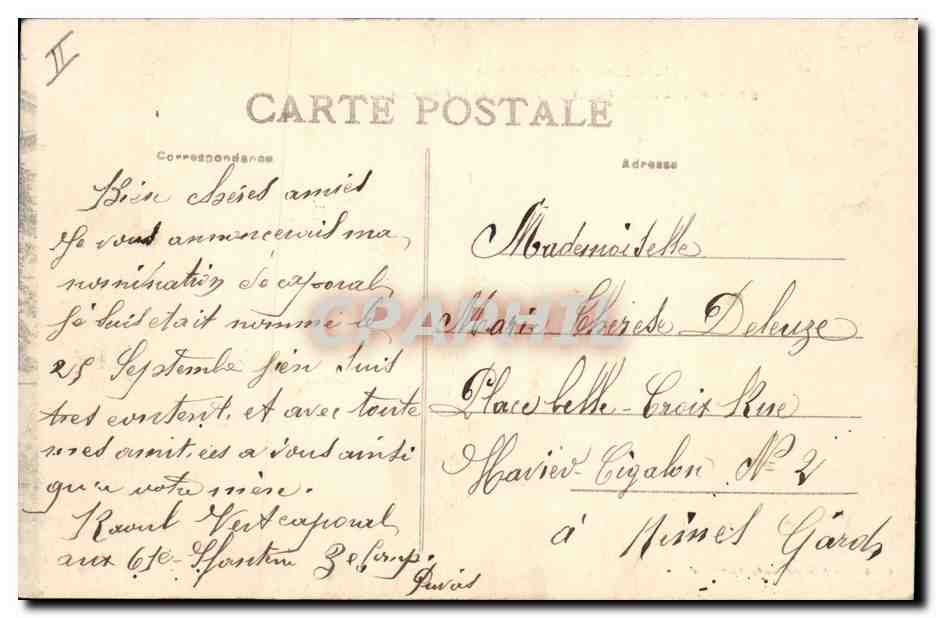 II
CARTE POSTALE
Correspondance
Bien chéres amies
Je vous annoncerais ma
nomination de caporal
Jé suis etait nommé le
25 Septembe j'en suis
tres content. et avec toute
mes amitiées a vous ainsi
qu'a votre mère.
Raoul Vert caporal
aux 61e Ifanterie 3e Comp.
Privas
Adresse
Mademoiselle
Marie Thérèse Deleuze
Place belle-Croix Rue
Xavier Cigalon N° 2
à Nimes Gard
CPAPHIL